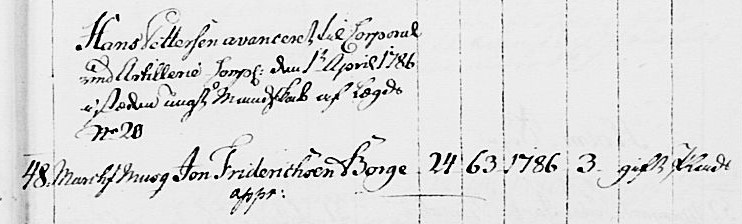 Hans Pettersen avanceret til Corporal
ved Artillerie Corps: den 1t April 1786
isteden ungt Mandskab af Lægds
No 20
48. Marchf Musq Jon Friderichsen Borge 24 63 1786 3 gift
appr: